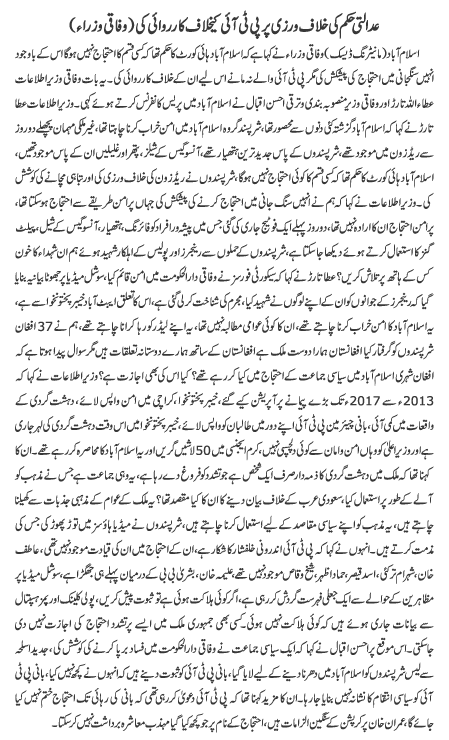 عدالتی حکم کی خلاف ورزی پر پی ٹی آئی کیخلاف کارروائی کی (وفاقی وزراء)
اسلام آباد (مانیٹرنگ ڈیسک) وفاقی وزراء نے کہا ہے کہ اسلام آباد ہائی کورٹ کا حکم تھا کہ کسی قسم کا احتجاج نہیں ہوگا اس کے باوجود
انہیں سنگجانی میں احتجاج کی پیشکش کی مگر پی ٹی آئی والے نہ مانے اس لیے ان کے خلاف کارروائی کی۔ یہ بات وفاقی وزیر اطلاعات
عطا اللہ تارڑ اور وفاقی وزیر منصوبہ بندی و ترقی احسن اقبال نے اسلام آباد میں پریس کانفرنس کرتے ہوئے کہی۔ وزیر اطلاعات عطا
تارڑ نے کہا کہ اسلام آباد گزشتہ کئی دنوں سے محصور تھا، شرپسند گروہ اسلام آباد میں امن خراب کرنا چاہتا تھا، غیر ملکی مہمان پچھلے دو روز
سے ریڈ زون میں موجود تھے، شرپسندوں کے پاس جدید ترین ہتھیار تھے، آنسو گیس کے شیلز، پتھر اور غلیلیں ان کے پاس موجود تھیں،
اسلام آباد ہائی کورٹ کا حکم تھا کہ کسی قسم کا کوئی احتجاج نہیں ہوگا، شرپسندوں نے ریڈ زون کی خلاف ورزی کی اور تباہی مچانے کی کوشش
کی۔ وزیر اطلاعات نے کہا کہ ہم نے انہیں سنگ جانی میں احتجاج کرنے کی پیشکش کی جہاں پر امن طریقے سے احتجاج ہوسکتا تھا،
پر امن احتجاج ان کا ارادہ نہیں تھا، دو روز پہلے ایک فوٹیج جاری کی گئی جس میں پیشہ ور افراد کو فائرنگ، ہتھیار، آنسو گیس کے شیل، پیلٹ
گنز کا استعمال کرتے ہوئے دیکھا جاسکتا ہے، شرپسندوں کے حملوں سے رینجرز اور پولیس کے اہلکار شہید ہوئے ہم ان شہداء کا خون
کس کے ہاتھ پر تلاش کریں؟ عطا تارڑ نے کہا کہ سیکورٹی فورسز نے وفاقی دارالحکومت میں امن قائم کیا، سوشل میڈیا پر جھوٹا بیانیہ بنایا
گیا کہ رینجرز کے جوانوں کو ان کے اپنے لوگوں نے شہید کیا، مجرم کی شناخت کرلی گئی ہے، اس کا تعلق ایبٹ آباد خیبر پختونخوا سے ہے،
یہ اسلام آباد کا امن خراب کرنا چاہتے تھے، ان کا کوئی عوامی مطالبہ نہیں تھا، یہ اپنے لیڈر کو رہا کرانا چاہتے تھے، ہم نے 37 افغان
شرپسندوں کو گرفتار کیا افغانستان ہمارا دوست ملک ہے افغانستان کے ساتھ ہمارے دوستانہ تعلقات ہیں مگر سوال پیدا ہوتا ہے کہ
افغان شہری اسلام آباد میں سیاسی جماعت کے احتجاج میں کیا کررہے تھے؟ کیا اس کی بھی اجازت ہے؟ وزیر اطلاعات نے کہا کہ
2013ء سے 2017ء تک بڑے پیمانے پر آپریشن کیے گئے، خیبر پختونخوا، کراچی میں امن واپس لائے، دہشت گردی کے
واقعات میں کمی آئی، بانی چیئرمین پی ٹی آئی اپنے دور میں طالبان کو واپس لائے، خیبر پختونخوا میں اس وقت دہشت گردی کی لہر جاری
ہے اور وزیر اعلیٰ کو وہاں امن و امان سے کوئی دلچسپی نہیں، کرم ایجنسی میں 50 لاشیں گریں اور یہ اسلام آباد کا محاصرہ کررہے تھے۔ ان کا
کہنا تھا کہ ملک میں دہشت گردی کا ذمہ دار صرف ایک شخص ہے جو تشدد کو فروغ دے رہا ہے، یہ وہی جماعت ہے جس نے مذہب کو
آلے کے طور پر استعمال کیا، سعودی عرب کے خلاف بیان دینے کا ان کا کیا مقصد تھا؟ یہ ملک کے عوام کے مذہبی جذبات سے کھیلنا
چاہتے ہیں، یہ مذہب کو اپنے سیاسی مقاصد کے لیے استعمال کرنا چاہتے ہیں، شرپسندوں نے میڈیا ہاؤسز میں توڑ پھوڑ کی جس کی
مذمت کرتے ہیں۔ انہوں نے کہا کہ پی ٹی آئی اندرونی خلفشار کا شکار ہے، ان کے احتجاج میں ان کی قیادت موجود نہیں تھی، عاطف
خان، شہرام ترکئی، اسد قیصر، حماد اظہر، شیخ وقاص موجود نہیں تھے، علیمہ خان، بشریٰ بی بی کے درمیان پہلے ہی جھگڑا ہے، سوشل میڈیا پر
مظاہرین کے حوالے سے ایک جعلی فہرست گردش کررہی ہے، اگر کوئی ہلاکت ہوئی ہے تو ثبوت پیش کریں، پولی کلینک اور پمز ہسپتال
سے بیانات جاری ہوئے ہیں کہ کوئی ہلاکت نہیں ہوئی۔ کسی بھی جمہوری ملک میں ایسے پر تشدد احتجاج کی اجازت نہیں دی
جاسکتی۔ اس موقع پر احسن اقبال نے کہا کہ ایک سیاسی جماعت نے وفاقی دارالحکومت میں فساد برپا کرنے کی کوشش کی، جدید اسلحہ
سے لیس شرپسندوں کو اسلام آباد میں دھرنا دینے کے لیے لایا گیا، بانی پی ٹی آئی کو ثبوت دینے ہیں کہ انہوں نے کچھ نہیں کیا، بانی پی ٹی
آئی کو سیاسی انتقام کا نشانہ نہیں بنایا جارہا۔ ان کا مزید کہنا تھا کہ پی ٹی آئی دعویٰ کررہی تھی کہ بانی کی رہائی تک احتجاج ختم نہیں کیا
جائے گا، عمران خان پر کرپشن کے سنگین الزامات ہیں، احتجاج کے نام پر جو کچھ کیا گیا مہذب معاشرہ برداشت نہیں کرسکتا۔